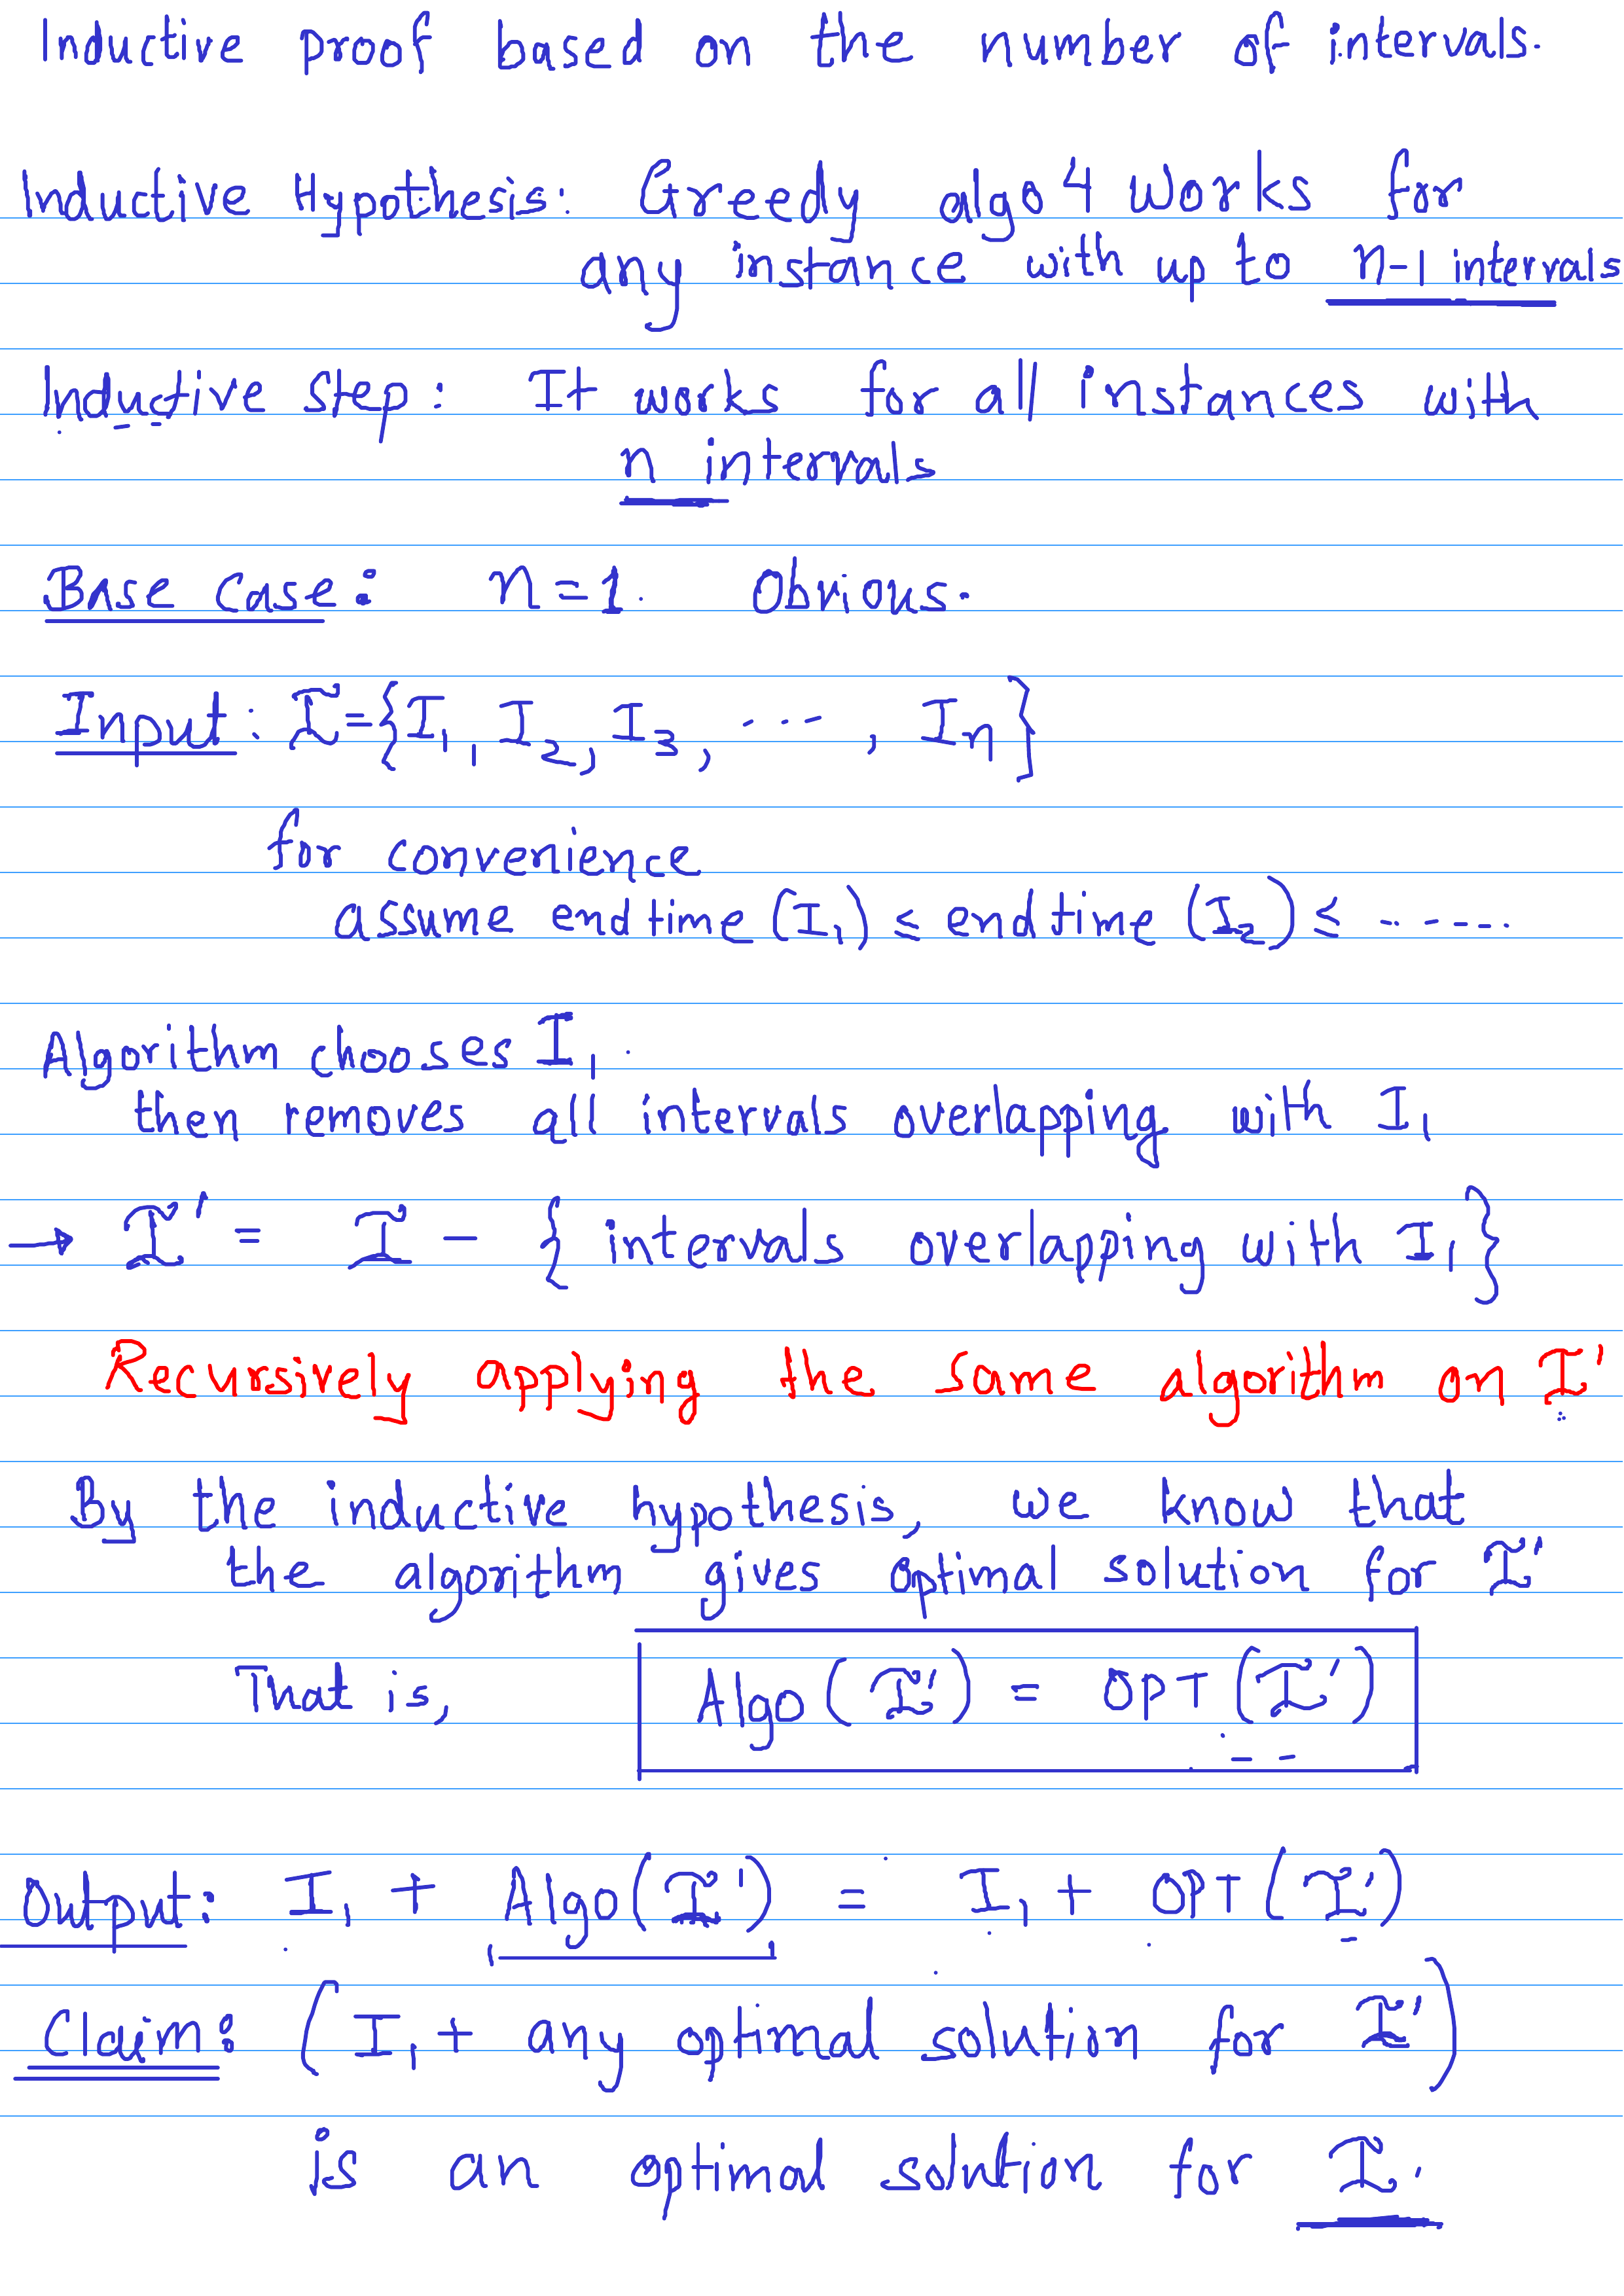 Inductive proof based on the number of intervals.
Inductive Hypothesis: Greedy algo 4 works for
any instance with up to n-1 intervals
Inductive step: It works for all instances with
n intervals
Base case: n=1. Obvious.
Input: I={I₁, I₂, I₃, ..., Iₙ}
for convenience
assume endtime (I₁) ≤ endtime (I₂) ≤ ......
Algorithm chooses I₁.
then removes all intervals overlapping with I₁
→ I' = I - { intervals overlapping with I₁ }
Recursively applying the same algorithm on I'
By the inductive hypothesis, we know that
the algorithm gives optimal solution for I'
That is, Algo (I') = OPT (I')
Output: I₁ + Algo(I') = I₁ + OPT(I')
Claim: (I₁ + any optimal solution for I')
is an optimal solution for I.